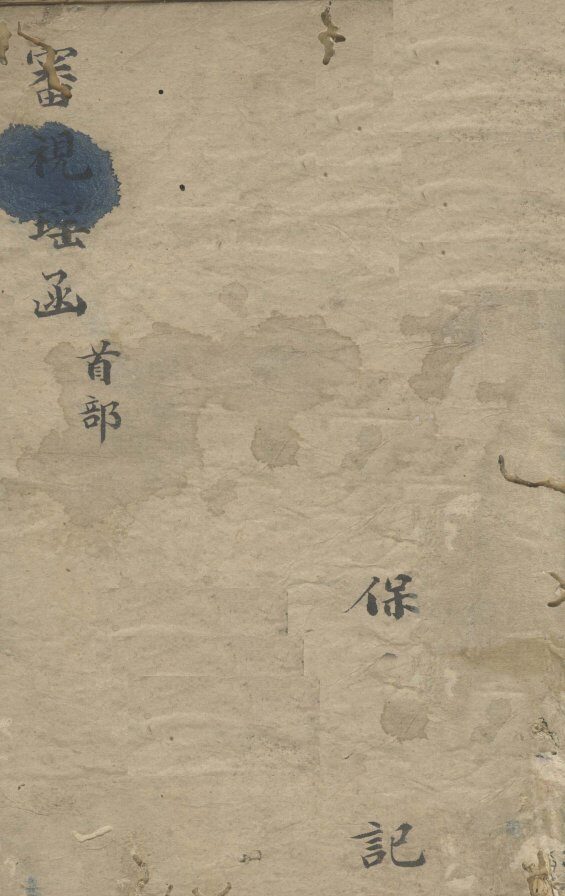 審視瑶函
首部
保記